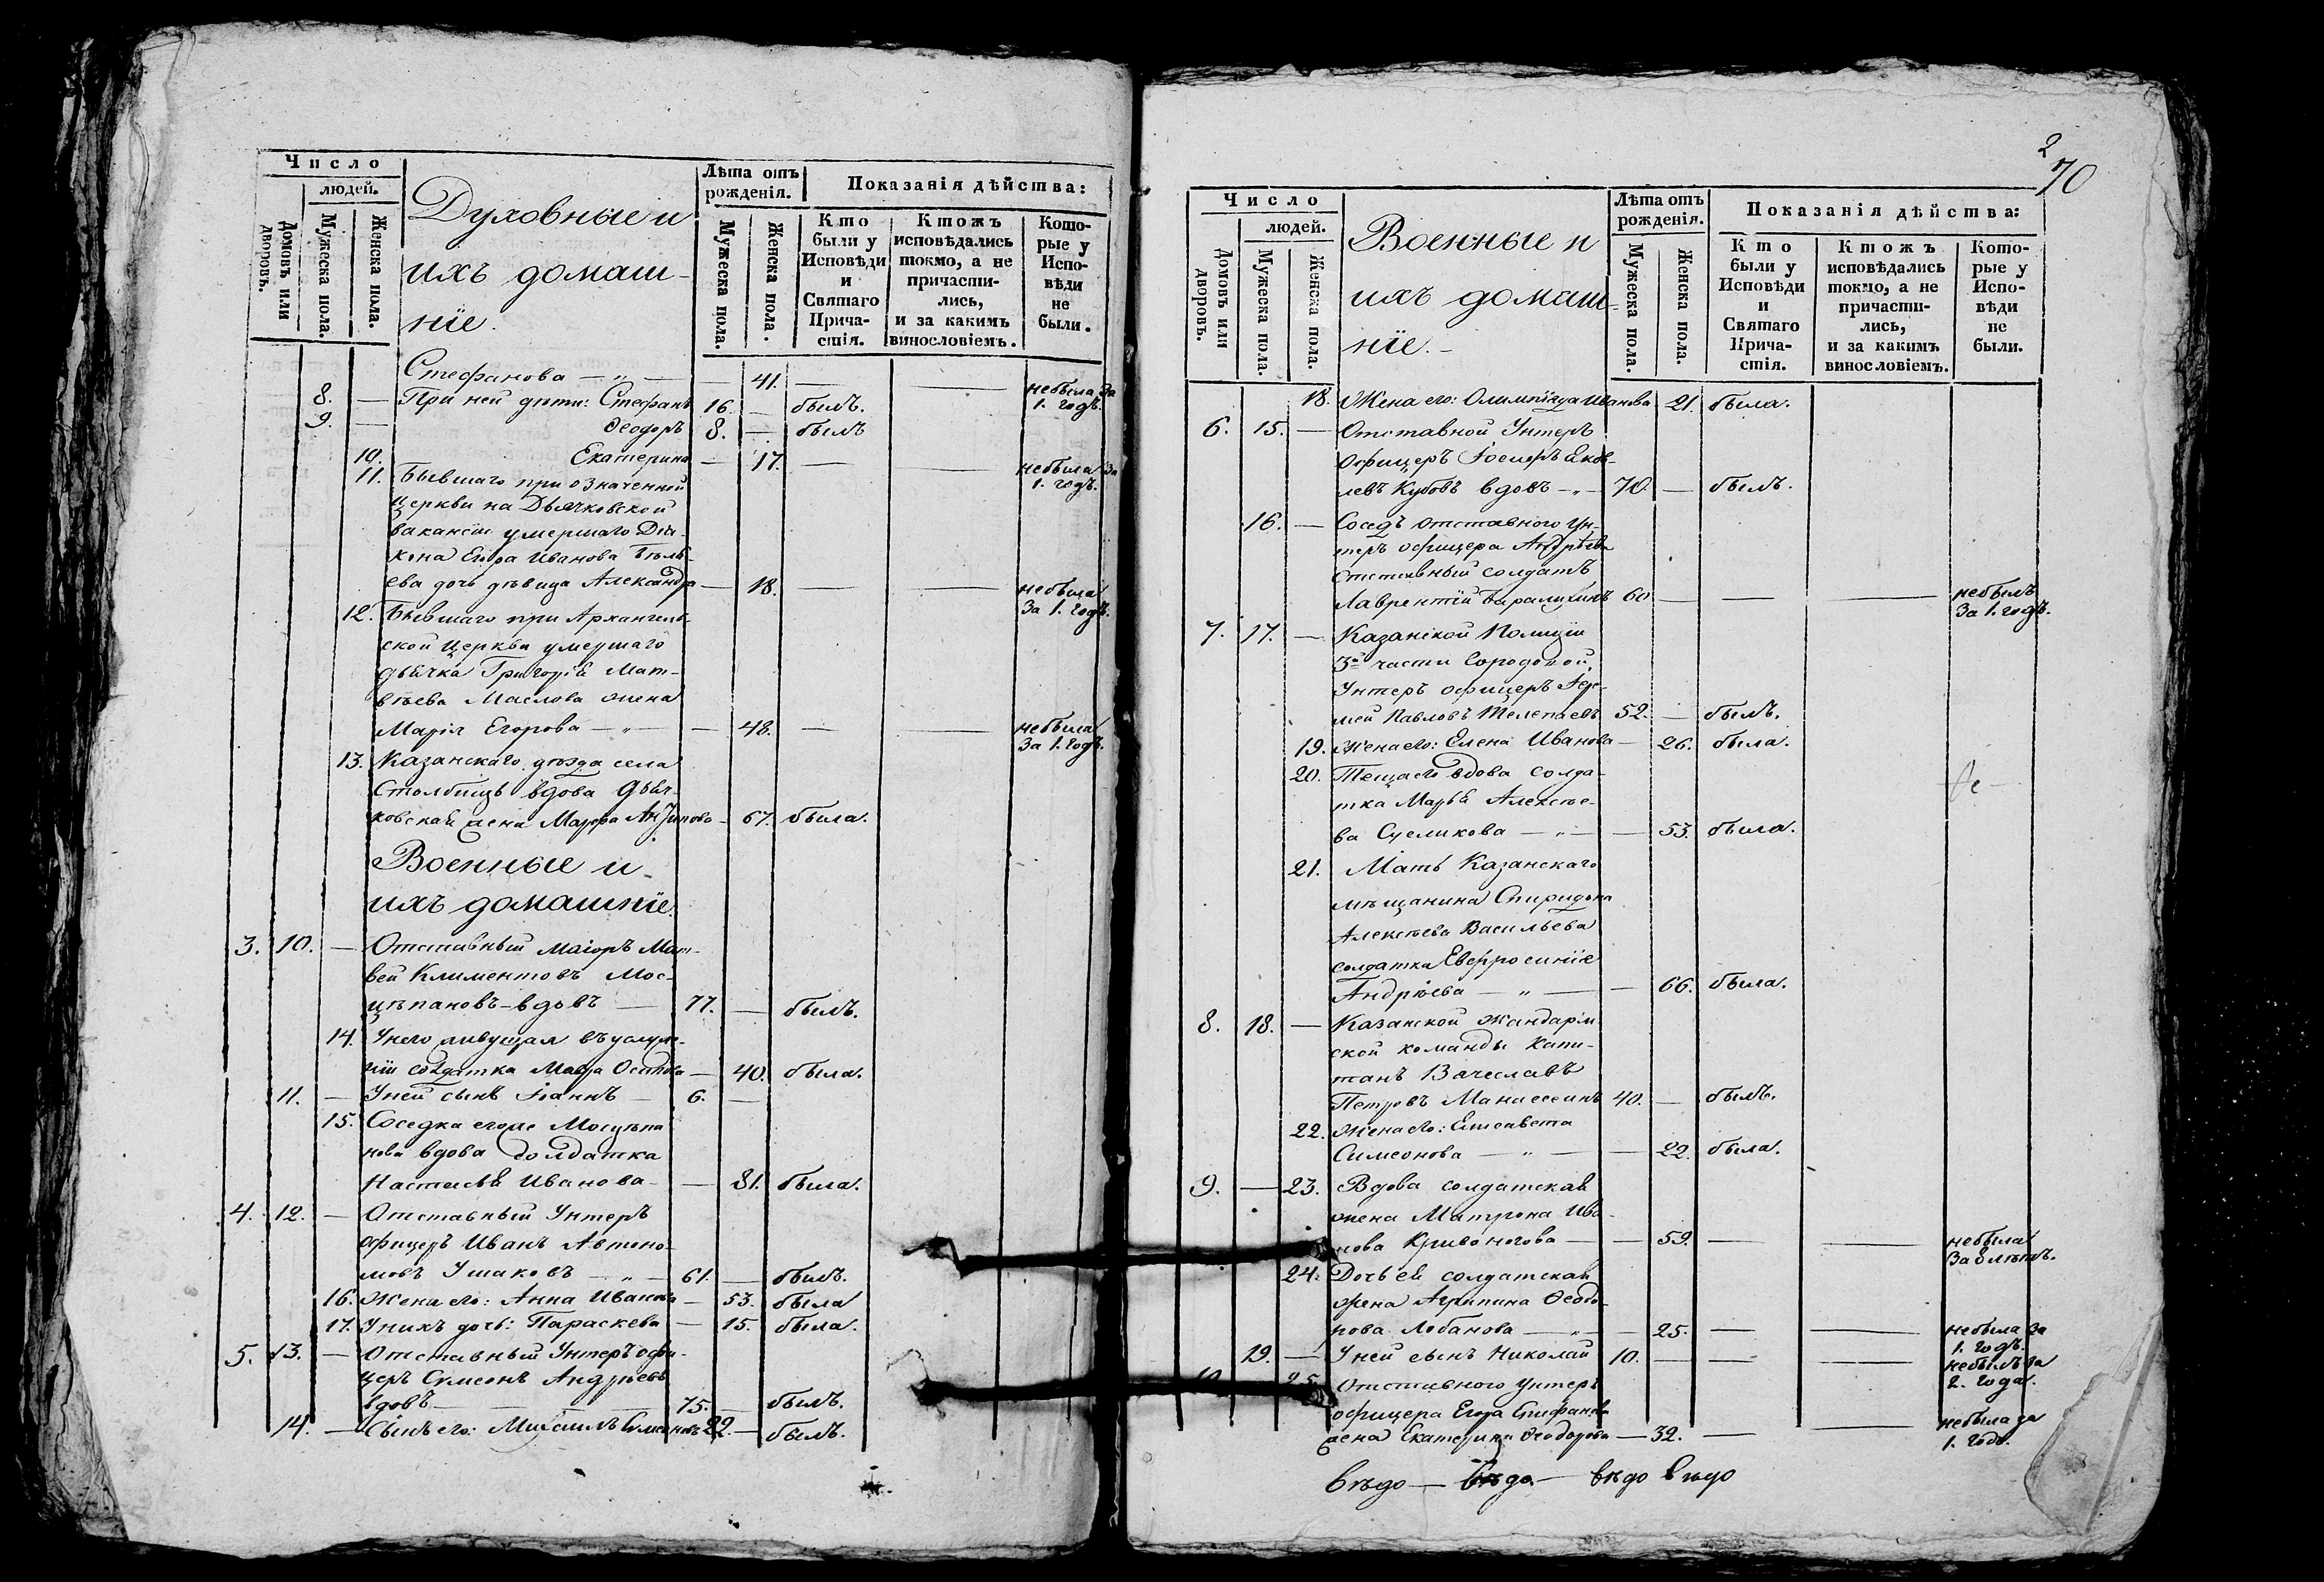 Число
людей.
Домовъ или дворовъ.
Мужеска пола.
Женска пола.
Духовные и
ихъ домаш-
ніе.
Лѣта отъ
рожденія.
Мужеска пола.
Женска пола.
Показанія дѣйства:
Кто были у Исповѣди и Святаго Прича-стія.
Ктожъ исповѣдались токмо, а не причасти-лись, и за какимъ винословіемъ.
Кото-рые у Испо-вѣди не были.
Стефанова — „ — — 41. — — небыла за
8. — При ней дѣти: Стефанъ 16. — былъ. 1. годъ.
9. — Ѳеодоръ 8. — былъ
10. Екатерина — 17. — — небыла за
11. Бывшаго при означенной 1. годъ.
церкви на Дьячковской
вакансіи умершаго Діа-
кона Егора Иванова Бѣль-
ева дочь дѣвица Александра — 18. — — небыла
12. Бывшаго при Архангель- за 1. годъ.
ской церкви умершаго
дьячка Григорія Мат-
вѣева Маслова жена
Марія Егорова — „ — — 48. — — небыла
13. Казанскаго уѣзда села за 1. годъ.
Столбищъ вдова дьяч-
ковская жена Марѳа Антипова — 67. была.
Военные и
ихъ домашніе.
3. 10. — Отставный Маіоръ Мат-
вей Климентовъ Мос-
цѣпановъ - вдовъ — 77. — былъ.
14. Унего живущая въ услуже-
ніи солдатка Мавра Осипова — 40. была.
11. — Уней сынъ Іоаннъ — 6. —
15. Соседка егоже Мосцѣпа
нова вдова солдатка
Настасья Иванова — — 81. была.
4. 12. — Отставный Унтеръ
офицеръ Иванъ Автоно-
мовъ Ушаковъ — „ — 61. — былъ.
16. Жена его: Анна Иванова — 53. была
17. Унихъ дочь: Параскева — 15. была.
5. 13. — Отставный Унтеръ офи-
церъ Симеонъ Андрѣевъ
вдовъ — 75. — былъ.
14. — Сынъ его: Михаилъ Симеоновъ 22. — былъ.
2
70
Число
людей.
Домовъ или дворовъ.
Мужеска пола.
Женска пола.
Военные и
ихъ домаш-
ніе.
Лѣта отъ
рожденія.
Мужеска пола.
Женска пола.
Показанія дѣйства:
Кто были у Исповѣди и Святаго Прича-стія.
Ктожъ исповѣдались токмо, а не причасти-лись, и за какимъ винословіемъ.
Кото-рые у Испо-вѣди не были.
18. Жена его: Олимпіада Иванова 21. была.
6. 15. — Отставной Унтеръ
Офицеръ Іосифъ Яков-
левъ Кубовъ вдовъ — „ — 70. — былъ.
16. — Соседъ отставного Ун-
теръ офицера Андрѣева
Отставный солдатъ
Лаврентій 60 — — — небылъ
за 1. годъ.
7. 17. — Казанской Полиціи
3й части Городовой
Унтеръ офицеръ
Павловъ Телепаевъ 52. — былъ.
19. Жена его: Елена Иванова — 26. была.
20. Теща его вдова солда-
тка Марья Алексѣе-
ва — „ — — 53. была.
21. Мать Казанскаго
мѣщанина Спиридона
Алексѣева Васильева
солдатка Евфросинія
Андрѣева — „ — — 66. была.
8. 18. — Казанской Жандарм
ской команды Капи-
танъ Вячеславъ
Петровъ Манассеинъ 40. — былъ.
22. Жена его: Елисавета
Симеонова — „ — — 22. была.
9. — 23. Вдова солдатская
жена Матрона Ива-
нова Кривоногова — — 59. — — небыла
за 8 лѣтъ.
24. Дочь ея солдатская
жена Агрипина Ѳеодо-
рова Лобанова — „ — — 25. — — небыла за
1. годъ.
19. — Уней сынъ Николай 10. — — — небылъ за
2. года.
10. 25. Отставного унтеръ
офицера Егора Епифанова
жена Екатерина Ѳеодорова — 32. — — небыла за
1. годъ.
вѣдо — вѣдо — вѣдо вѣдо